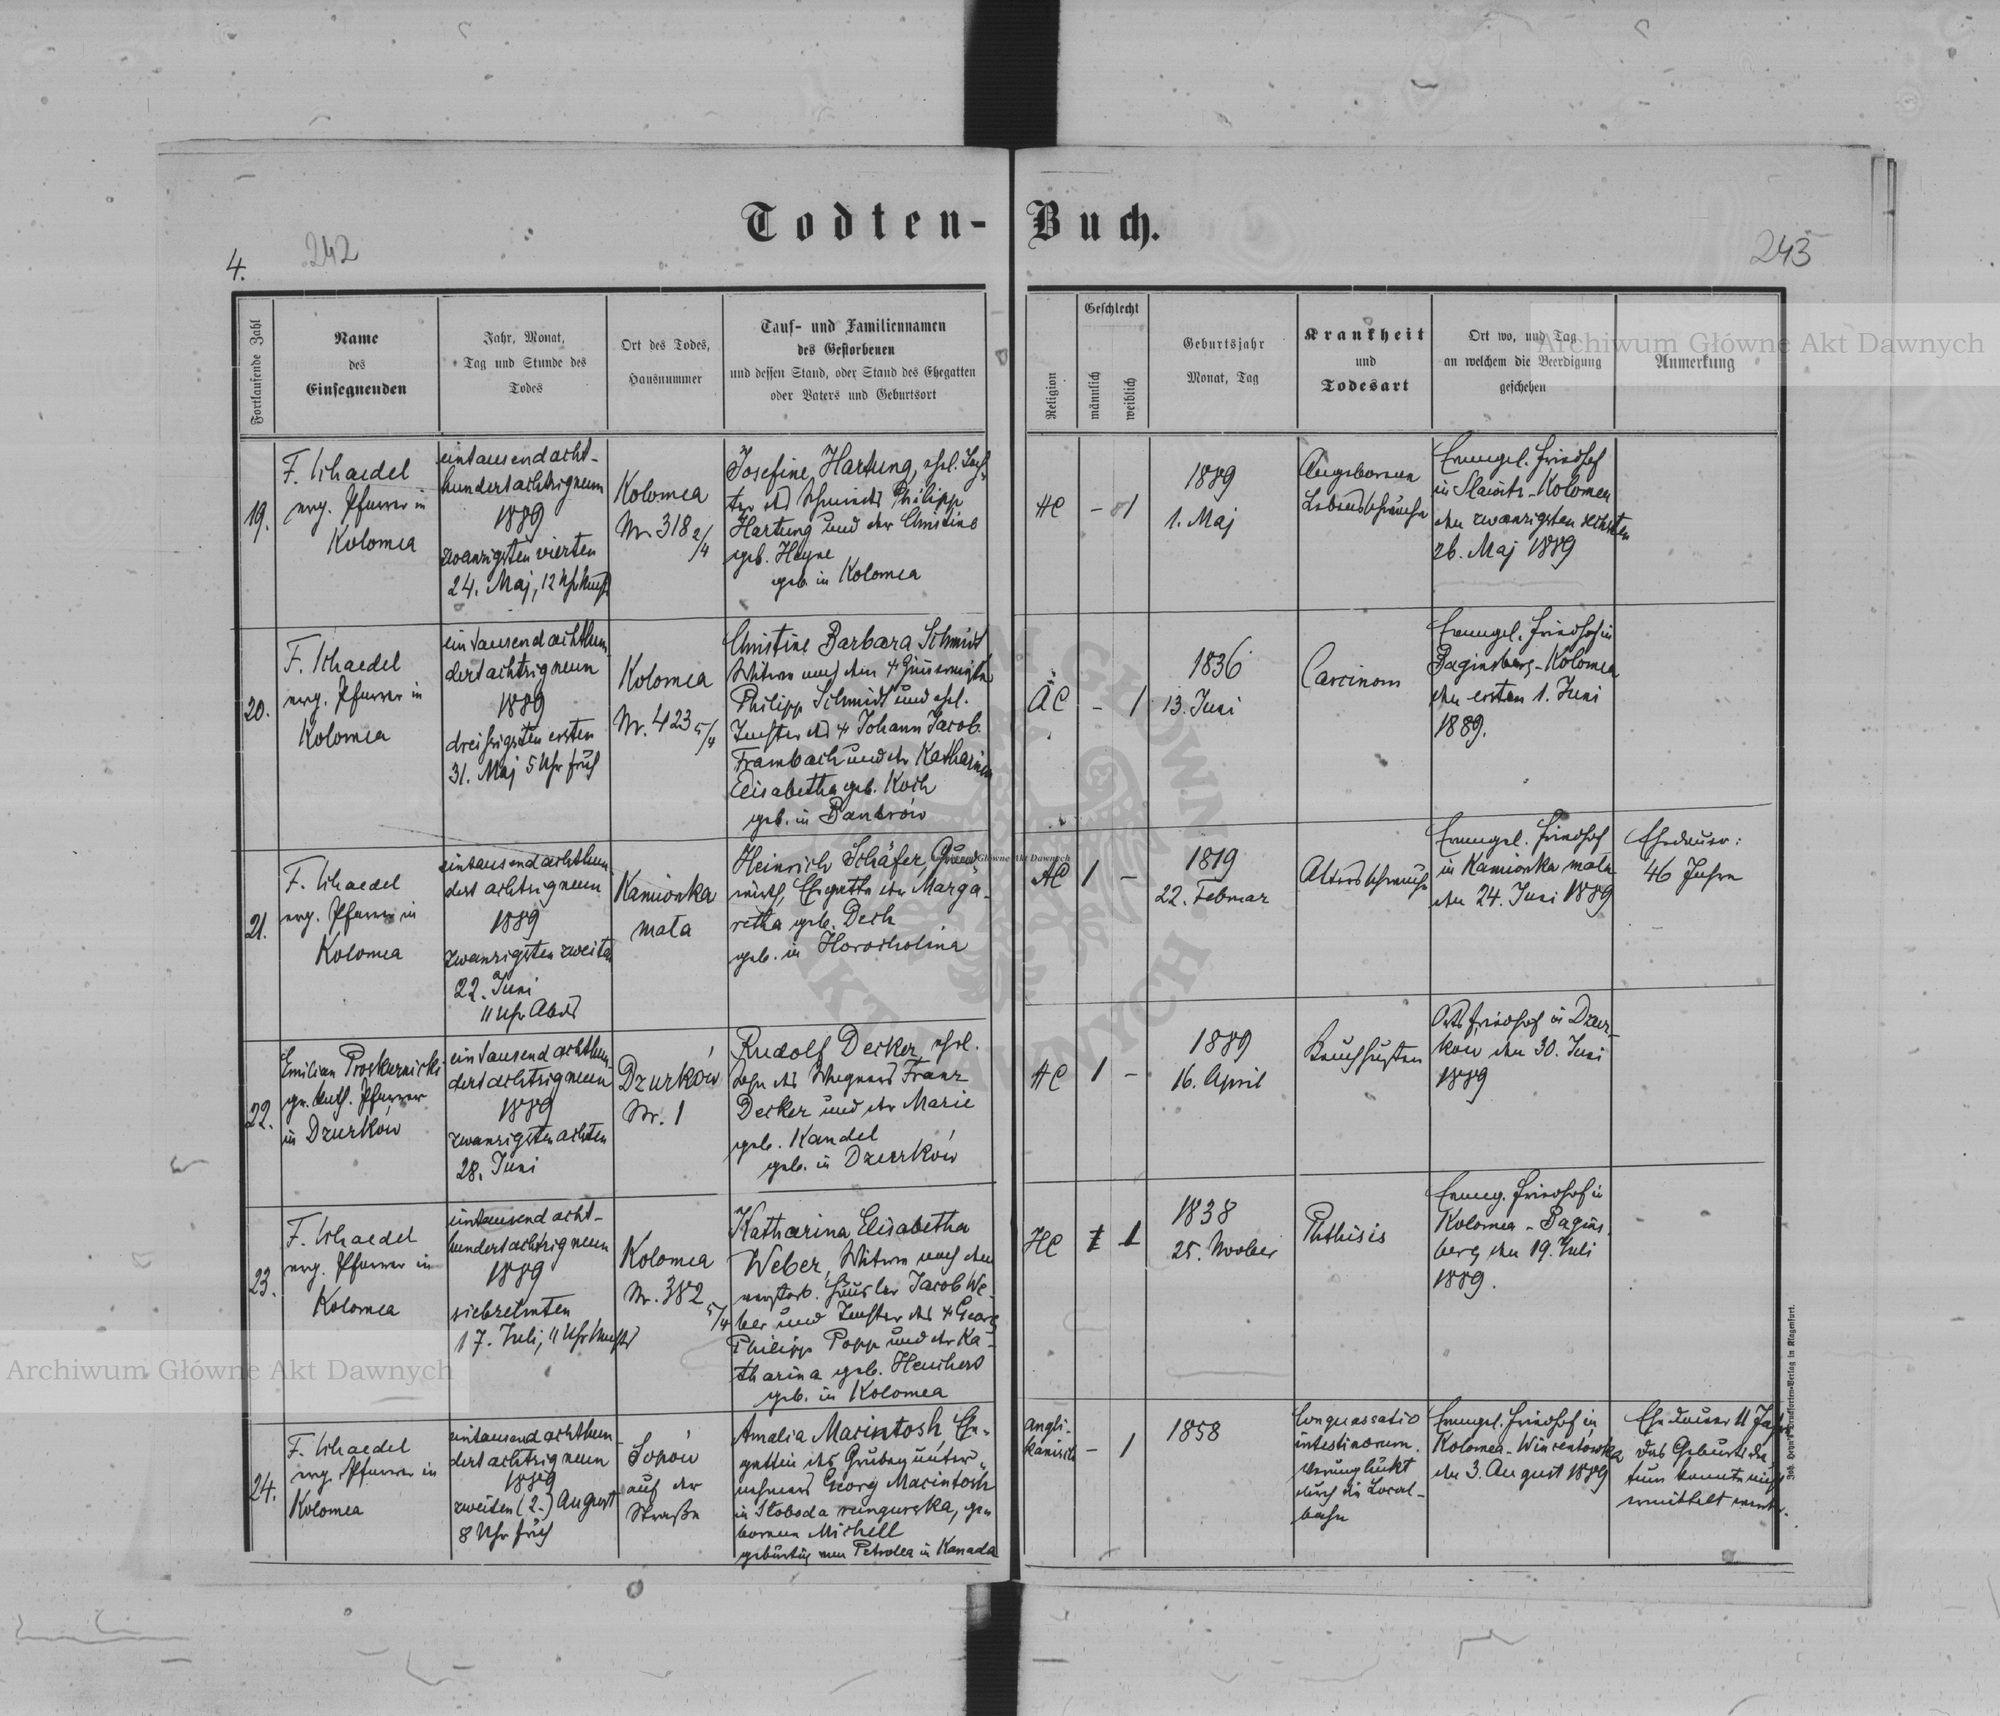 Todten-Buch.
4.
242
243
Fortlaufende Zahl
Name
des
Einsegnenden
Jahr, Monat,
Tag und Stunde des
Todes
Ort des Todes,
Hausnummer
Tauf- und Familiennamen
des Gestorbenen
und dessen Stand, oder Stand des Ehegatten
oder Vaters und Geburtsort
Religion
Geschlecht
männlich
weiblich
Geburtsjahr
Monat, Tag
Krankheit
und
Todesart
Ort wo, und Tag
an welchem die Beerdigung
geschehen
Anmerkung
Archiwum Główne Akt Dawnych
19.
F. Schaedel
evg. Pfarrer in
Kolomea
eintausendacht-
hundertachtzigneun
1889
zwanzigsten vierten
24. Maj, 12 Uhr
Kolomea
Nr 318 2/4
Josefine Hartung, ehl. Toch-
ter des Schmieds Philipp
Hartung und der Christine
geb. Heyne
geb. in Kolomea
HC
-
1
1889
1. Maj
Angeborene
Lebensschwäche
Evangel. Friedhof
in Slawitz-Kolomea
den zwanzigsten sechsten
26. Maj 1889
20.
F. Schaedel
evg. Pfarrer in
Kolomea
ein tausend achthun-
dertachtzigneun
1889
dreißigsten ersten
31. Maj 5 Uhr früh
Kolomea
Nr. 423 5/4
Christine Barbara Schmidt
Witwe nach dem
Philipp Schmidt und ehl.
Tochter des † Johann Jacob
Frambach und der Katharina
Elisabetha geb. Koch
geb. in Bandrów
AC
-
1
1836
13. Juni
Carcinom
Evangel. Friedhof in
Baginsberg-Kolomea
den ersten 1. Juni
1889.
21.
F. Schaedel
evg. Pfarrer in
Kolomea
eintausendachthun-
dert achtzigneun
1889
zwanzigsten zweiten
22. Juni
11 Uhr Abds
Kamionka
mała
Heinrich Schäfer, Grund-
wirth, Ehegatte der Marga-
retha geb. Dech
geb. in Horocholina
AC
1
-
1819
22. Februar
Altersschwäche
Evangel. Friedhof
in Kamionka mała
den 24. Juni 1889
Ehedauer:
46 Jahre
22.
Emilian Proskurnicki
gr. kath. Pfarrer
in Dzurków
ein tausend achthun-
dertachtzigneun
1889
zwanzigsten achten
28. Juni
Dzurków
Nr. 1
Rudolf Decker, ehl.
Sohn des Wagners Franz
Decker und der Marie
geb. Kandel
geb. in Dzurków
HC
1
-
1889
16. April
Keuchhusten
Ortsfriedhof in Dzur-
ków den 30. Juni
1889
23.
F. Schaedel
evg. Pfarrer in
Kolomea
eintausend acht-
hundertachtzigneun
1889
siebzehnten
17. Juli, 11 Uhr
Kolomea
Nr. 382 5/4
Katharina Elisabetha
Weber, Witwe nach dem
verstorb. Häusler Jacob We-
ber und Tochter des † Georg
Philipp Popp und der Ka-
tharina geb. Heuchert
geb. in Kolomea
HC
1
1838
25. November
Phthisis
Evang. Friedhof in
Kolomea - Bagins-
berg den 19. Juli
1889.
24.
F. Schaedel
evg. Pfarrer in
Kolomea
eintausend achthun-
dertachtzigneun
1889
zweiten (2.) August
8 Uhr früh
Sopów
auf der
Straße
Amalia Macintosh Ehe-
gattin des Grubenunter-
nehmers Georg Macintosh
in Sloboda rungurska, ge-
borene Michell
gebürtig von Petrolea in Kanada
Angli-
kanisch
-
1
1858
Conquassatio
intestinorum.
Verunglückt
durch die Local-
bahn
Evangel. Friedhof in
Kolomea-Wincentówka
den 3. August 1889
Ehedauer 11 Jahre
das Geburtsda-
tum konnte nicht
ermittelt werden.
Joh. Leon Drucksorten-Verlag in Klagenfurt.
Archiwum Główne Akt Dawnych